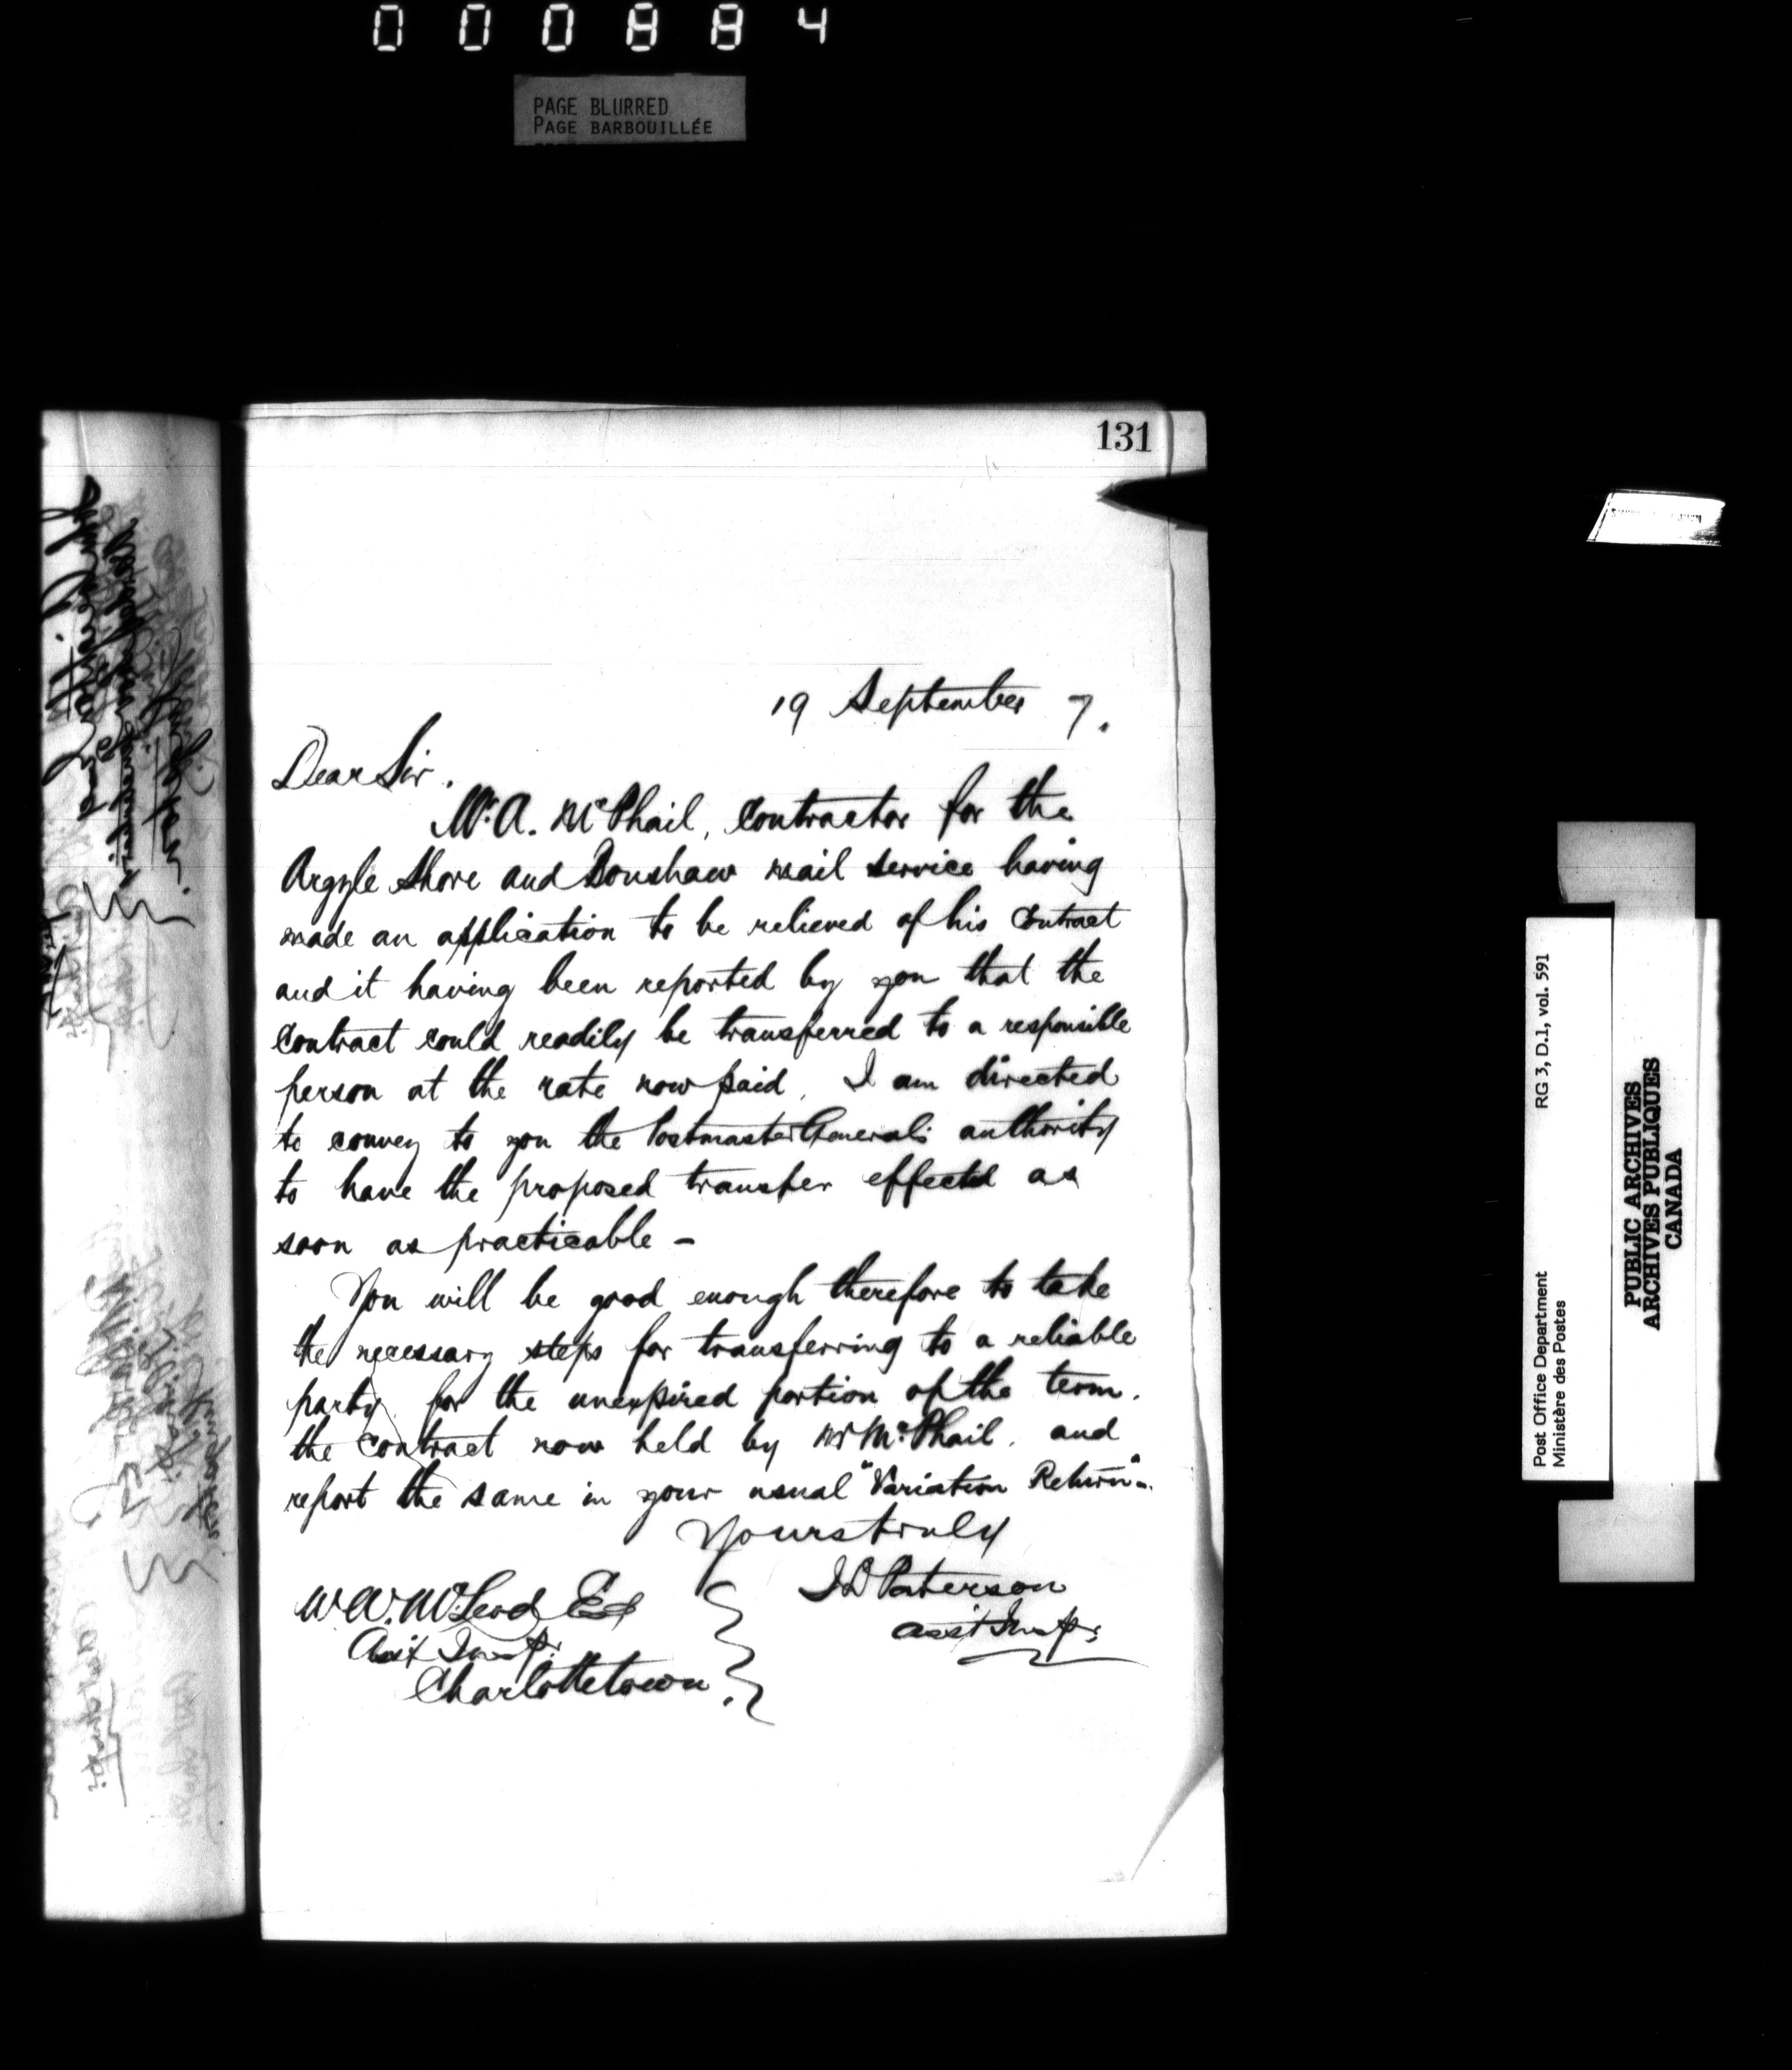 000884
PAGE BLURRED
PAGE BARBOUILLÉE
131
19 September 7.
Dear Sir.
Mr. A. McPhail, contractor for the
Argyle Shore and Bonshaw mail service having
made an application to be relieved of his contract
and it having been reported by you that the
contract could readily be transferred to a responsible
person at the rate now paid, I am directed
to convey to you the Postmaster General's authority
to have the proposed transfer effected as
soon as practicable –
You will be good enough therefore to take
the necessary steps for transferring to a reliable
party, for the unexpired portion of the term,
the contract now held by Mr McPhail, and
report the same in your usual "Variation Return".
Yours truly
J D Paterson
Asst Inspr
W. W. McLeod Esq
Asst Inspr.
Charlottetown.
RG 3, D.1, vol. 591
Post Office Department
Ministère des Postes
PUBLIC ARCHIVES
ARCHIVES PUBLIQUES
CANADA